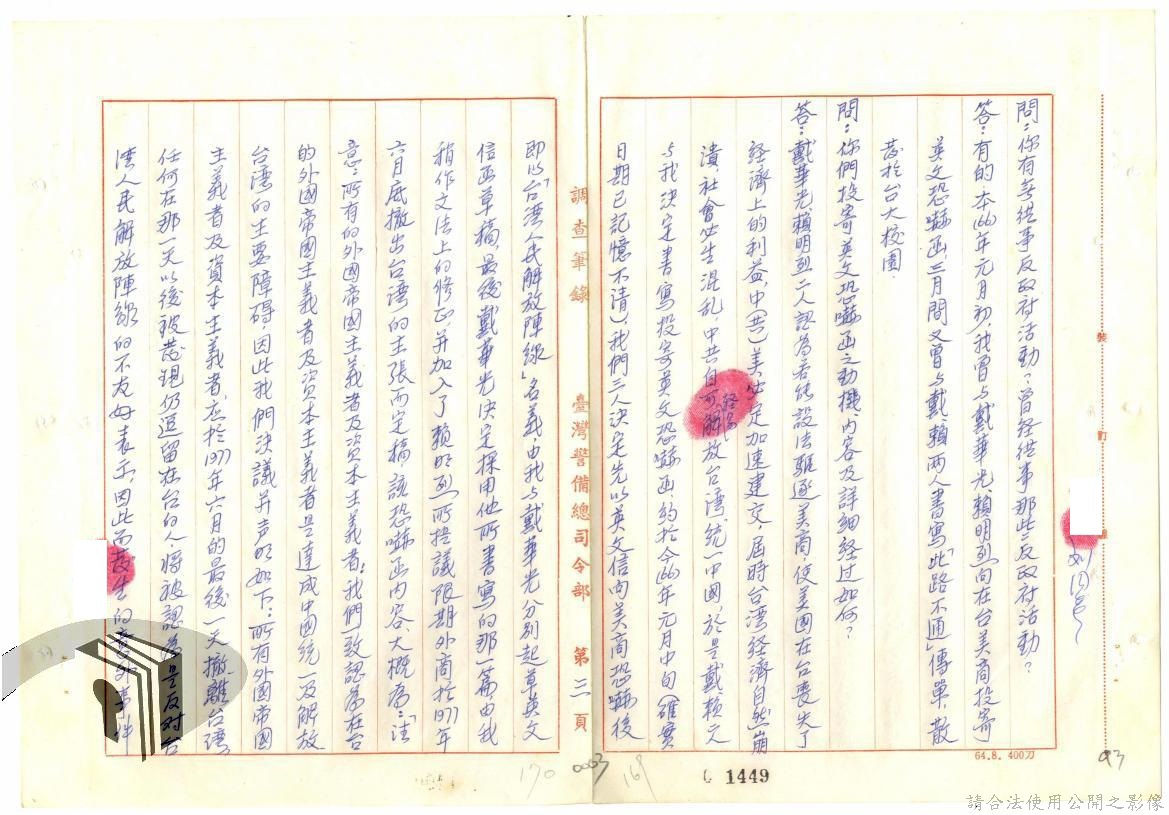 問：你有無從事反政府活動？曾經從事那些反政府活動？
答：有的本(66)年元月初，我曾与戴華光、賴明列向在台美商投寄
英文恐嚇函，三月間又曾与戴賴兩人書寫「此路不通」傳單，散
發於台大校園．
問：你們投寄英文恐嚇函之動機、內容及詳細経过如何？
答：戴華光賴明列二人認為若能設法驅逐美商使美国在台喪失了
経濟上的利益，中(共)美必定加速建交，屆時台湾経濟自然崩
潰，社會必生混乱，中共自可解放台湾統一中國，於是戴賴元
与我決定書寫投寄英文恐嚇函，約於今(66)年元月中旬(確實
日期已記憶不清)我們三人決定先以英文信向美商恐嚇後
調查筆錄　臺灣警備總司令部　第三頁
即以「台湾人民解放陣線」名義，由我与戴華光分別起草英文
信函草稿，最後戴華光決定採用他所書寫的那一篇由我
稍作文法上的修正，并加入了賴明列所提議限期外商於1977年
六月底撤出台湾」的主張而定稿，該恐嚇函內容、大概為：「注
意：所有的外國帝國主義者及資本主義者：我們一致認為在台
的外國帝國主義者及資本主義者是達成中國統一及解放
台湾的主要障碍，因此我們決議并声明如下：所有外國帝國
主義者及資本主義者，应於1977年六月的最後一天撤離台湾，
任何在那一天以後被發現仍逗留在台的人，將被認為是反对台
湾人民解放陣線的不友好表示，因此而發生的意外事件
裝
訂
64.8. 400刀
93
170
0003
169
1449
請合法使用公開之影像